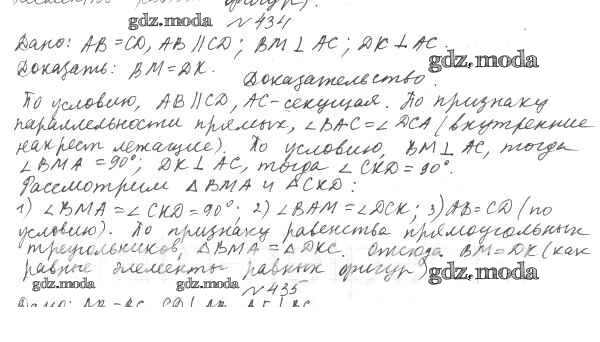 gdz.moda
№ 434
Дано: AB = CD, AB || CD; BM ⊥ AC; DK ⊥ AC.
gdz.moda
Доказать: BM = DK.
Доказательство.
По условию, AB || CD, AC - секущая. По признаку
параллельности прямых, ∠BAC = ∠DCA (внутренние
накрест лежащие). По условию, BM ⊥ AC, тогда
∠BMA = 90°; DK ⊥ AC, тогда ∠CKD = 90°.
Рассмотрим △BMA и △CKD:
1) ∠BMA = ∠CKD = 90°; 2) ∠BAM = ∠DCK; 3) AB = CD (по
условию). По признаку равенства прямоугольных
треугольников, △BMA = △DKC. Отсюда BM = DK (как
равные элементы равных фигур)
gdz.moda
gdz.moda gdz.moda
№ 435